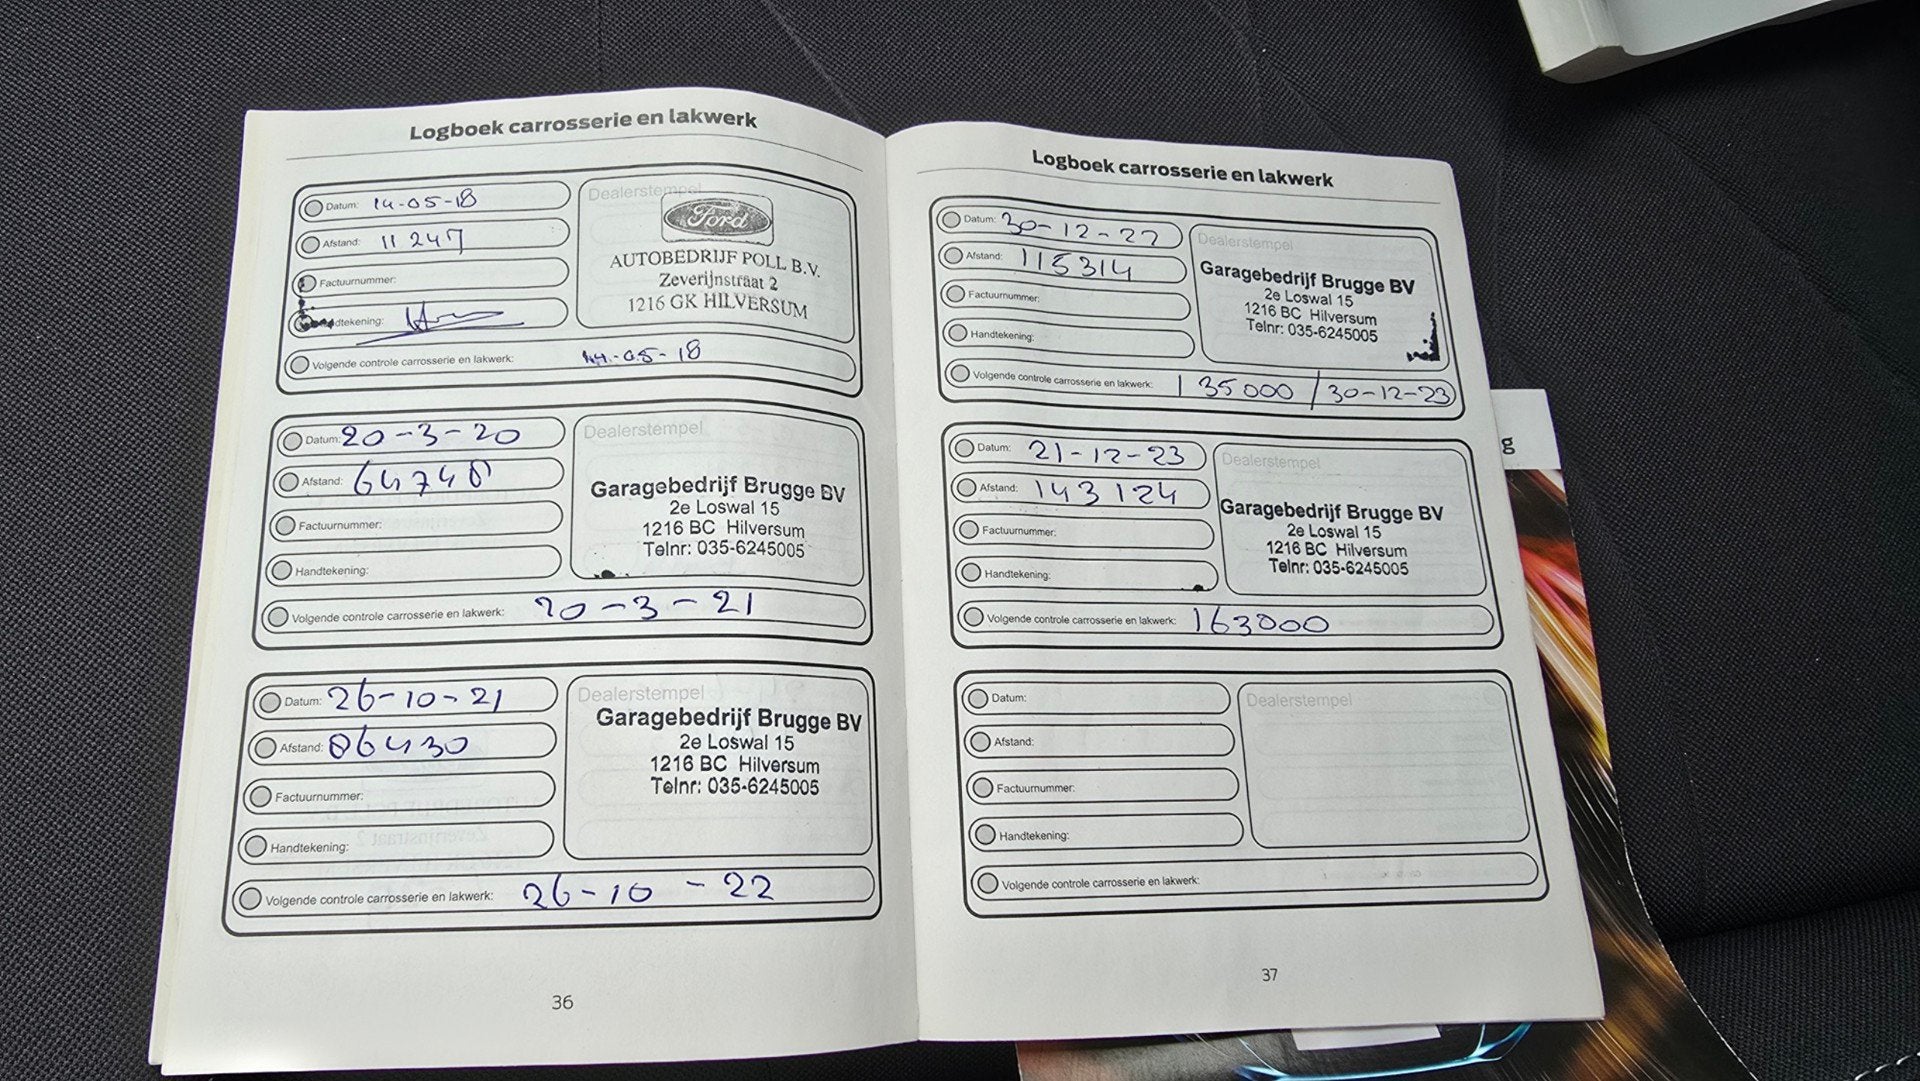 Logboek carrosserie en lakwerk
Datum: 14-05-18
Afstand: 11247
Factuurnummer:
dtekening:
Dealerstempel
Ford
AUTOBEDRIJF POLL B.V.
Zeverijnstraat 2
1216 GK HILVERSUM
Volgende controle carrosserie en lakwerk: 14-05-18
Datum: 20-3-20
Afstand: 64748
Factuurnummer:
Handtekening:
Dealerstempel
Garagebedrijf Brugge BV
2e Loswal 15
1216 BC Hilversum
Telnr: 035-6245005
Volgende controle carrosserie en lakwerk: 20-3-21
Datum: 26-10-21
Afstand: 86430
Factuurnummer:
Handtekening:
Dealerstempel
Garagebedrijf Brugge BV
2e Loswal 15
1216 BC Hilversum
Telnr: 035-6245005
Volgende controle carrosserie en lakwerk: 26-10-22
36
Logboek carrosserie en lakwerk
Datum: 30-12-22
Afstand: 115314
Factuurnummer:
Handtekening:
Dealerstempel
Garagebedrijf Brugge BV
2e Loswal 15
1216 BC Hilversum
Telnr: 035-6245005
Volgende controle carrosserie en lakwerk: 135000 / 30-12-23
Datum: 21-12-23
Afstand: 143124
Factuurnummer:
Handtekening:
Dealerstempel
Garagebedrijf Brugge BV
2e Loswal 15
1216 BC Hilversum
Telnr: 035-6245005
Volgende controle carrosserie en lakwerk: 163000
Datum:
Afstand:
Factuurnummer:
Handtekening:
Dealerstempel
Volgende controle carrosserie en lakwerk:
37
g